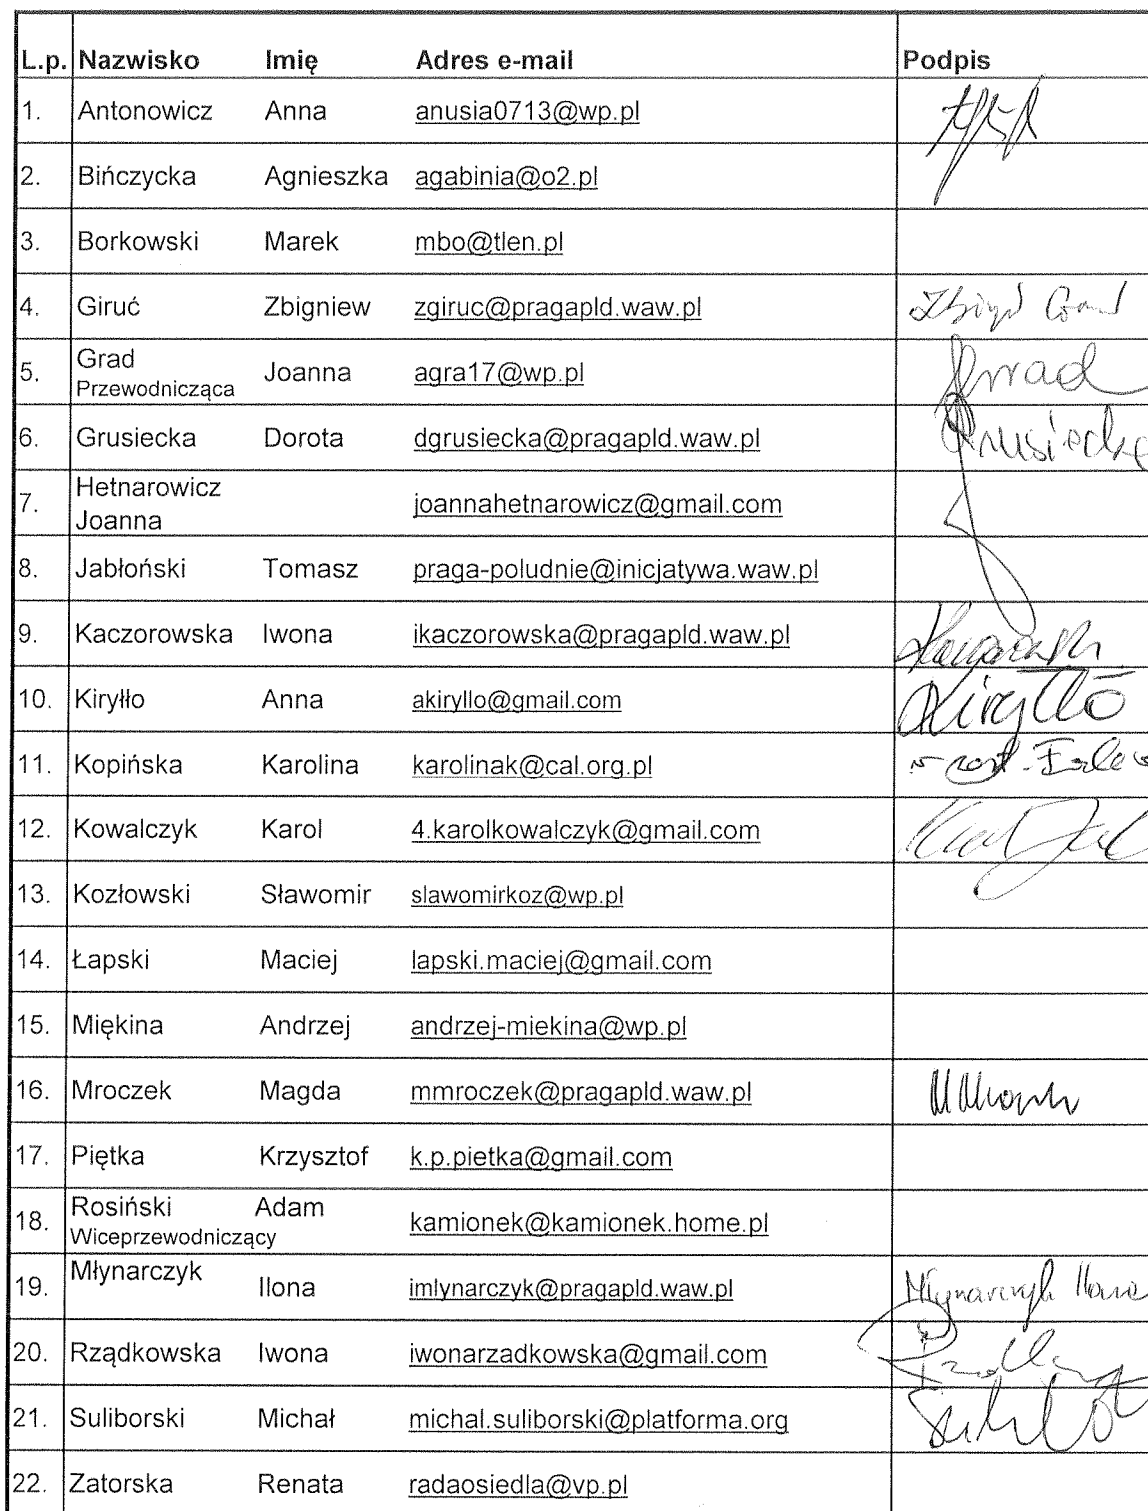 L.p. Nazwisko Imię Adres e-mail Podpis
1. Antonowicz Anna anusia0713@wp.pl
2. Bińczycka Agnieszka agabinia@o2.pl
3. Borkowski Marek mbo@tlen.pl
4. Giruć Zbigniew zgiruc@pragapld.waw.pl
5. Grad Joanna agra17@wp.pl
Przewodnicząca
6. Grusiecka Dorota dgrusiecka@pragapld.waw.pl Grusiecka
7. Hetnarowicz joannahetnarowicz@gmail.com
Joanna
8. Jabłoński Tomasz praga-poludnie@inicjatywa.waw.pl
9. Kaczorowska Iwona ikaczorowska@pragapld.waw.pl
10. Kiryłło Anna akiryllo@gmail.com Kiryłło
11. Kopińska Karolina karolinak@cal.org.pl
12. Kowalczyk Karol 4.karolkowalczyk@gmail.com
13. Kozłowski Sławomir slawomirkoz@wp.pl
14. Łapski Maciej lapski.maciej@gmail.com
15. Miękina Andrzej andrzej-miekina@wp.pl
16. Mroczek Magda mmroczek@pragapld.waw.pl
17. Piętka Krzysztof k.p.pietka@gmail.com
18. Rosiński Adam kamionek@kamionek.home.pl
Wiceprzewodniczący
19. Młynarczyk Ilona imlynarczyk@pragapld.waw.pl Młynarczyk Ilona
20. Rządkowska Iwona iwonarzadkowska@gmail.com
21. Suliborski Michał michal.suliborski@platforma.org
22. Zatorska Renata radaosiedla@vp.pl